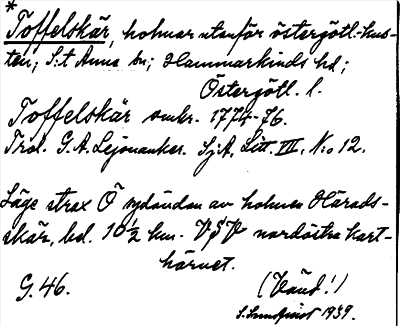 *
Toffelskär, holmar utanför östergötl.-kus-
ten; S:t Anna sn; Hammarkinds hd;
Östergötl. l.
Toffelskär omkr. 1774-76.
Trol. G.A. Lejonanker. SjA, Litt. VII, N:o 12.
Läge strax Ö sydändan av holmen Härads-
skär, bel. 10 1/2 km. VSV nordöstra kart-
hörnet.
G. 46. (Vänd!)
S. Sundqvist 1939.